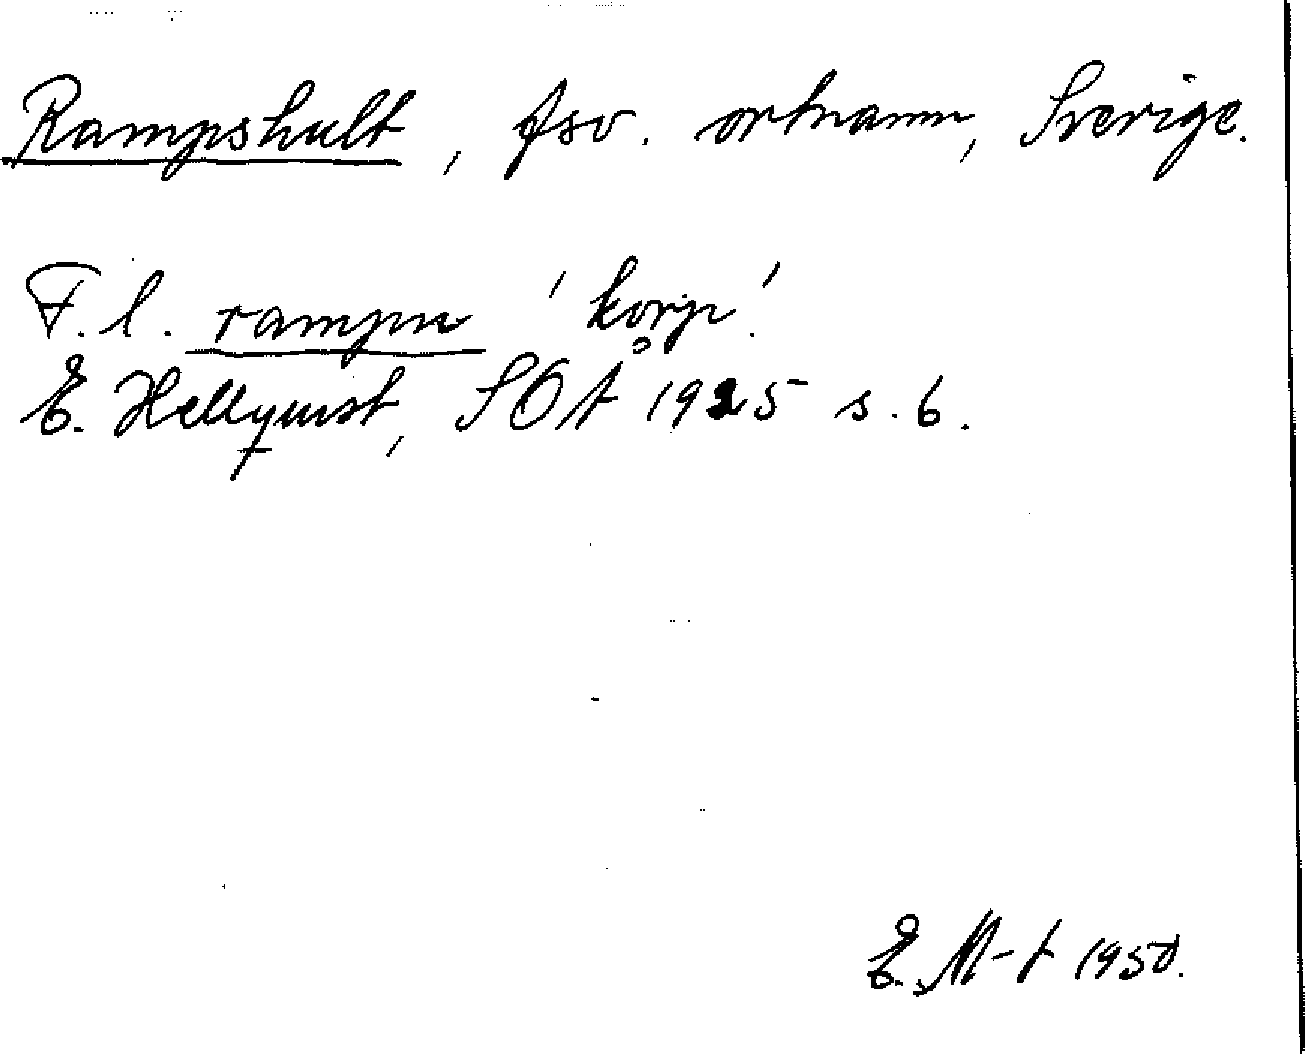 Rampshult, fsv. ortnamn, Sverige.
F.l. rampn 'korp'.
E. Hellquist, SOÅ 1925 s. 6.
E. M-t 1950.